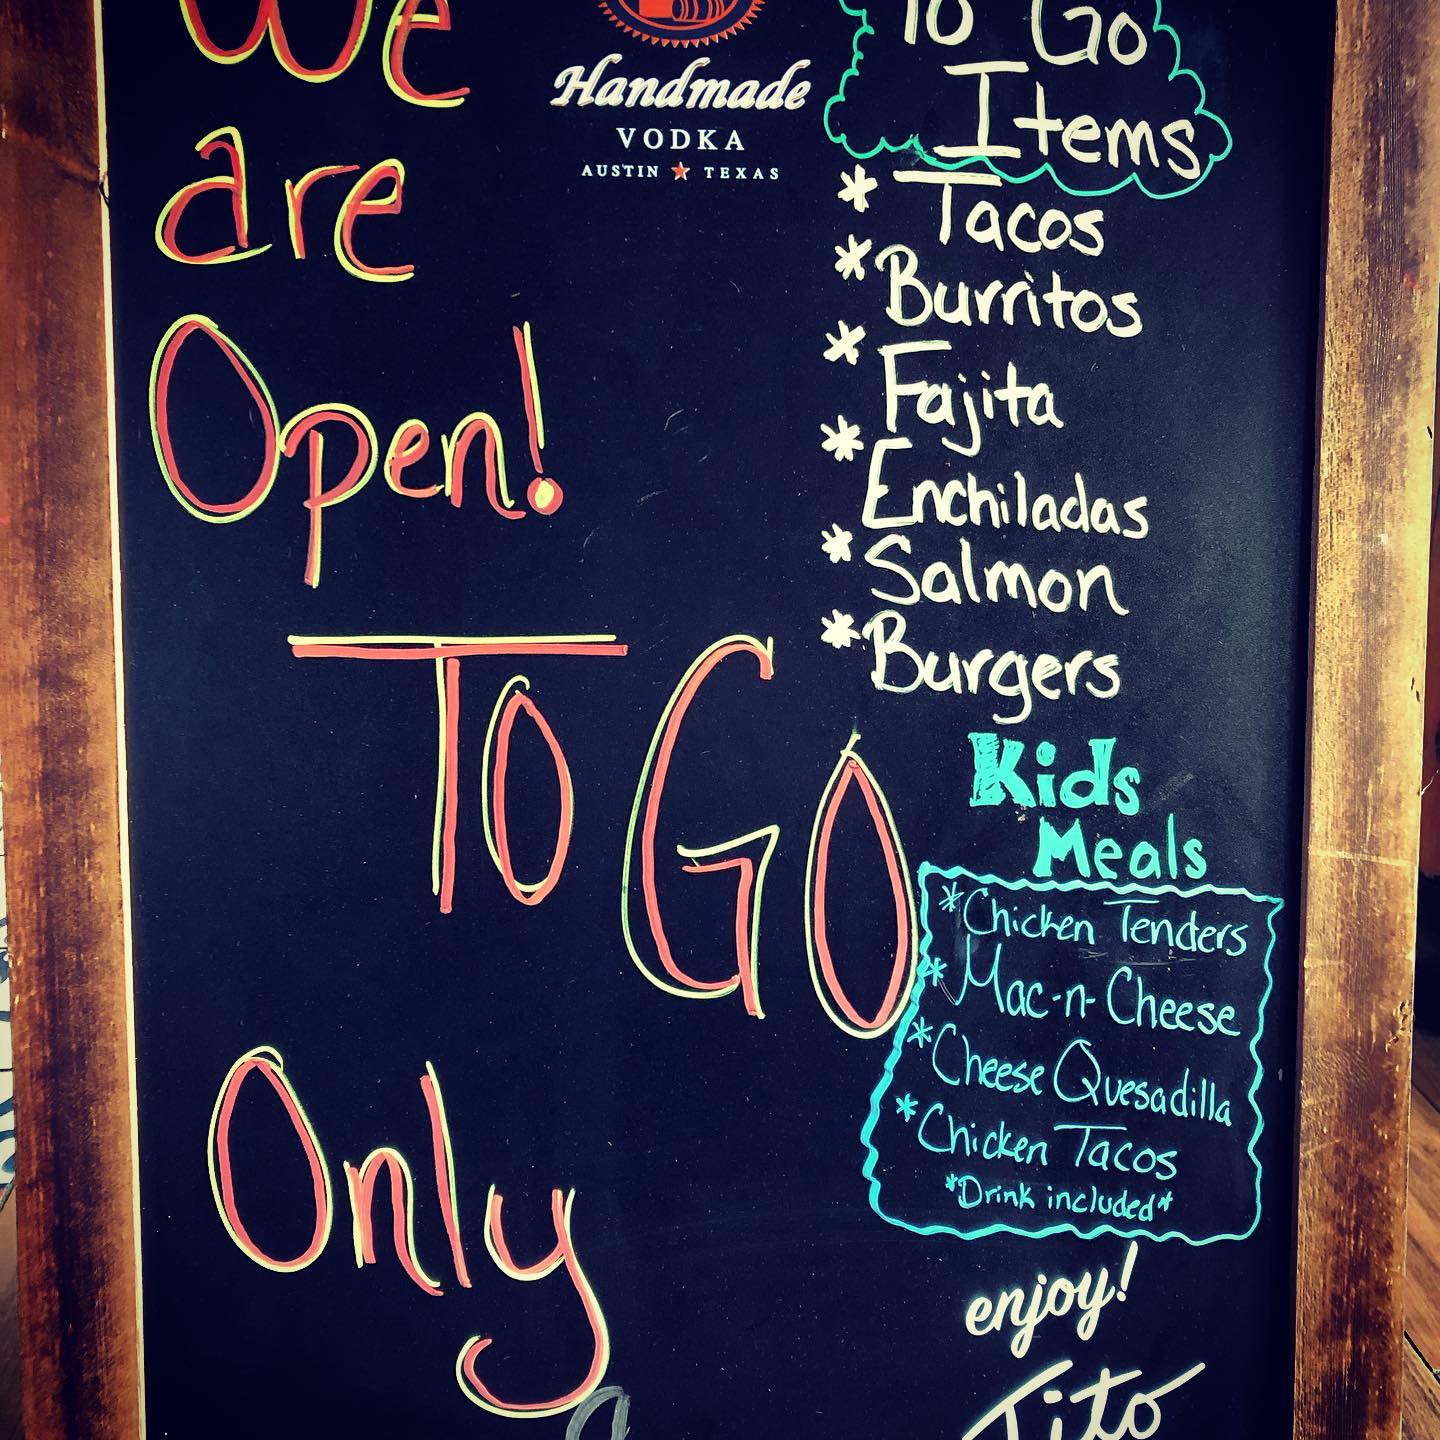 We
are
Open!
TO GO
Only
Handmade
VODKA
AUSTIN ★ TEXAS
To Go
Items
* Tacos
* Burritos
* Fajita
* Enchiladas
* Salmon
* Burgers
Kids
Meals
* Chicken Tenders
* Mac-n-Cheese
* Cheese Quesadilla
* Chicken Tacos
*Drink included*
enjoy!
Tito